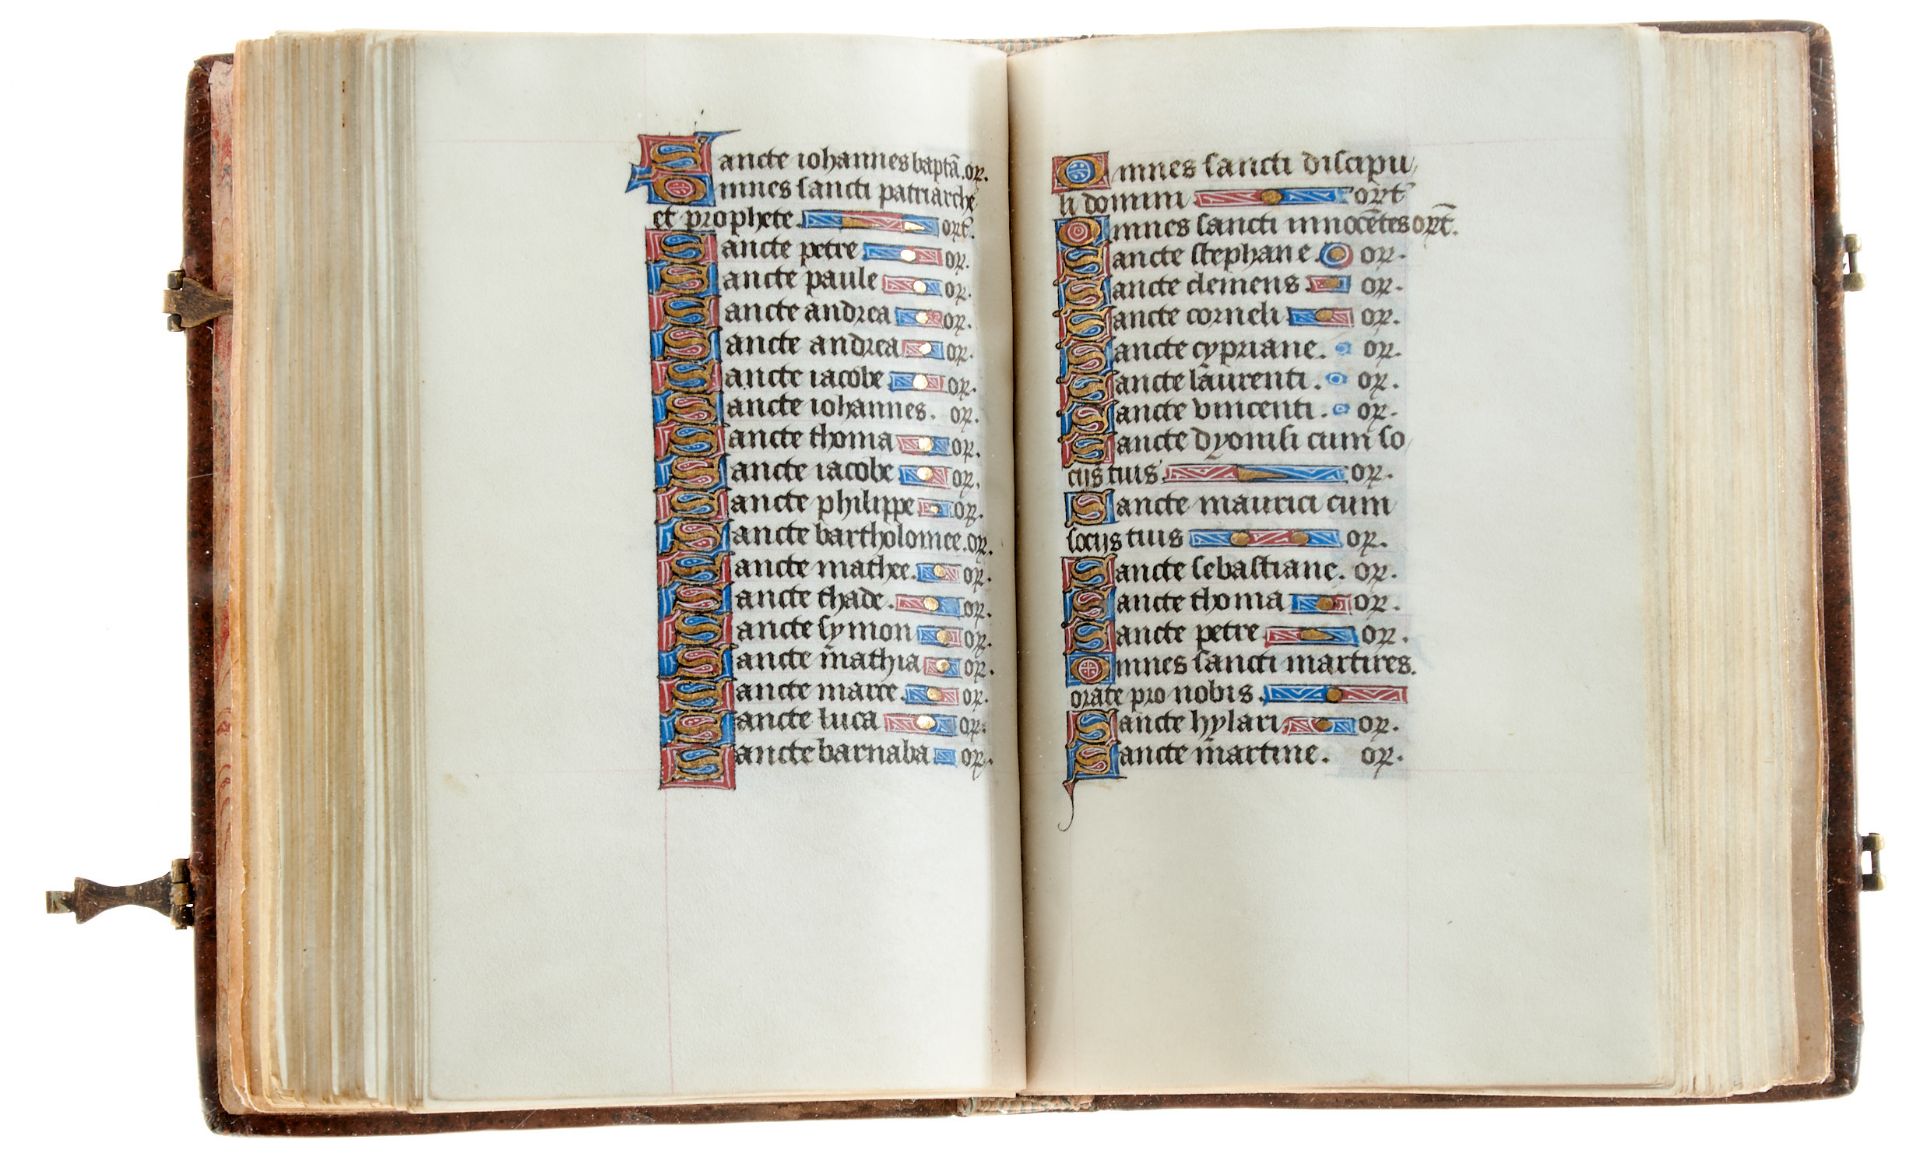 Sancte iohannes baptā. or.
Omnes sancti patriarche
et prophete. ort̄.
Sancte petre or.
Sancte paule or.
Sancte andrea or.
Sancte andrea or.
Sancte iacobe or.
Sancte iohannes. or.
Sancte thoma or.
Sancte iacobe or.
Sancte philippe or.
Sancte bartholomee. or.
Sancte mathee. or.
Sancte thade. or.
Sancte symon or.
Sancte mathia or.
Sancte marce. or.
Sancte luca or.
Sancte barnaba or.
Omnes sancti discipu
li domini. ort̄
Omnes sancti innocētes ort̄.
Sancte stephane. or.
Sancte clemens or.
Sancte corneli or.
Sancte cypriane. or.
Sancte laurenti. or.
Sancte vincenti. or.
Sancte dyonisi cum so
cijs tuis. or.
Sancte maurici cum
socijs tuis or.
Sancte sebastiane. or.
Sancte thoma or.
Sancte petre or.
Omnes sancti martires.
orate pro nobis.
Sancte hylari or.
Sancte martine. or.